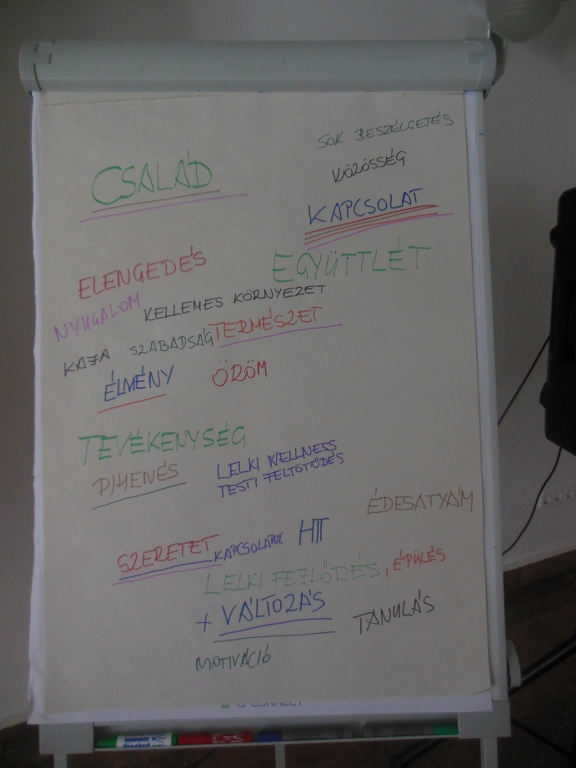 SOK BESZÉLGETÉS
KÖZÖSSÉG
CSALÁD
KAPCSOLAT
EGYÜTTLÉT
ELENGEDÉS
NYUGALOM
KELLEMES KÖRNYEZET
KAJA SZABADSÁG TERMÉSZET
ÉLMÉNY ÖRÖM
TEVÉKENYSÉG
PIHENÉS
LELKI WELLNESS
TESTI FELTÖTŐDÉS
ÉDESATYÁM
SZERETET KAPCSOLATOK HIT
LELKI FEJLŐDÉS, ÉPÜLÉS
+ VÁLTOZÁS TANULÁS
MOTIVÁCIÓ
CONNECT